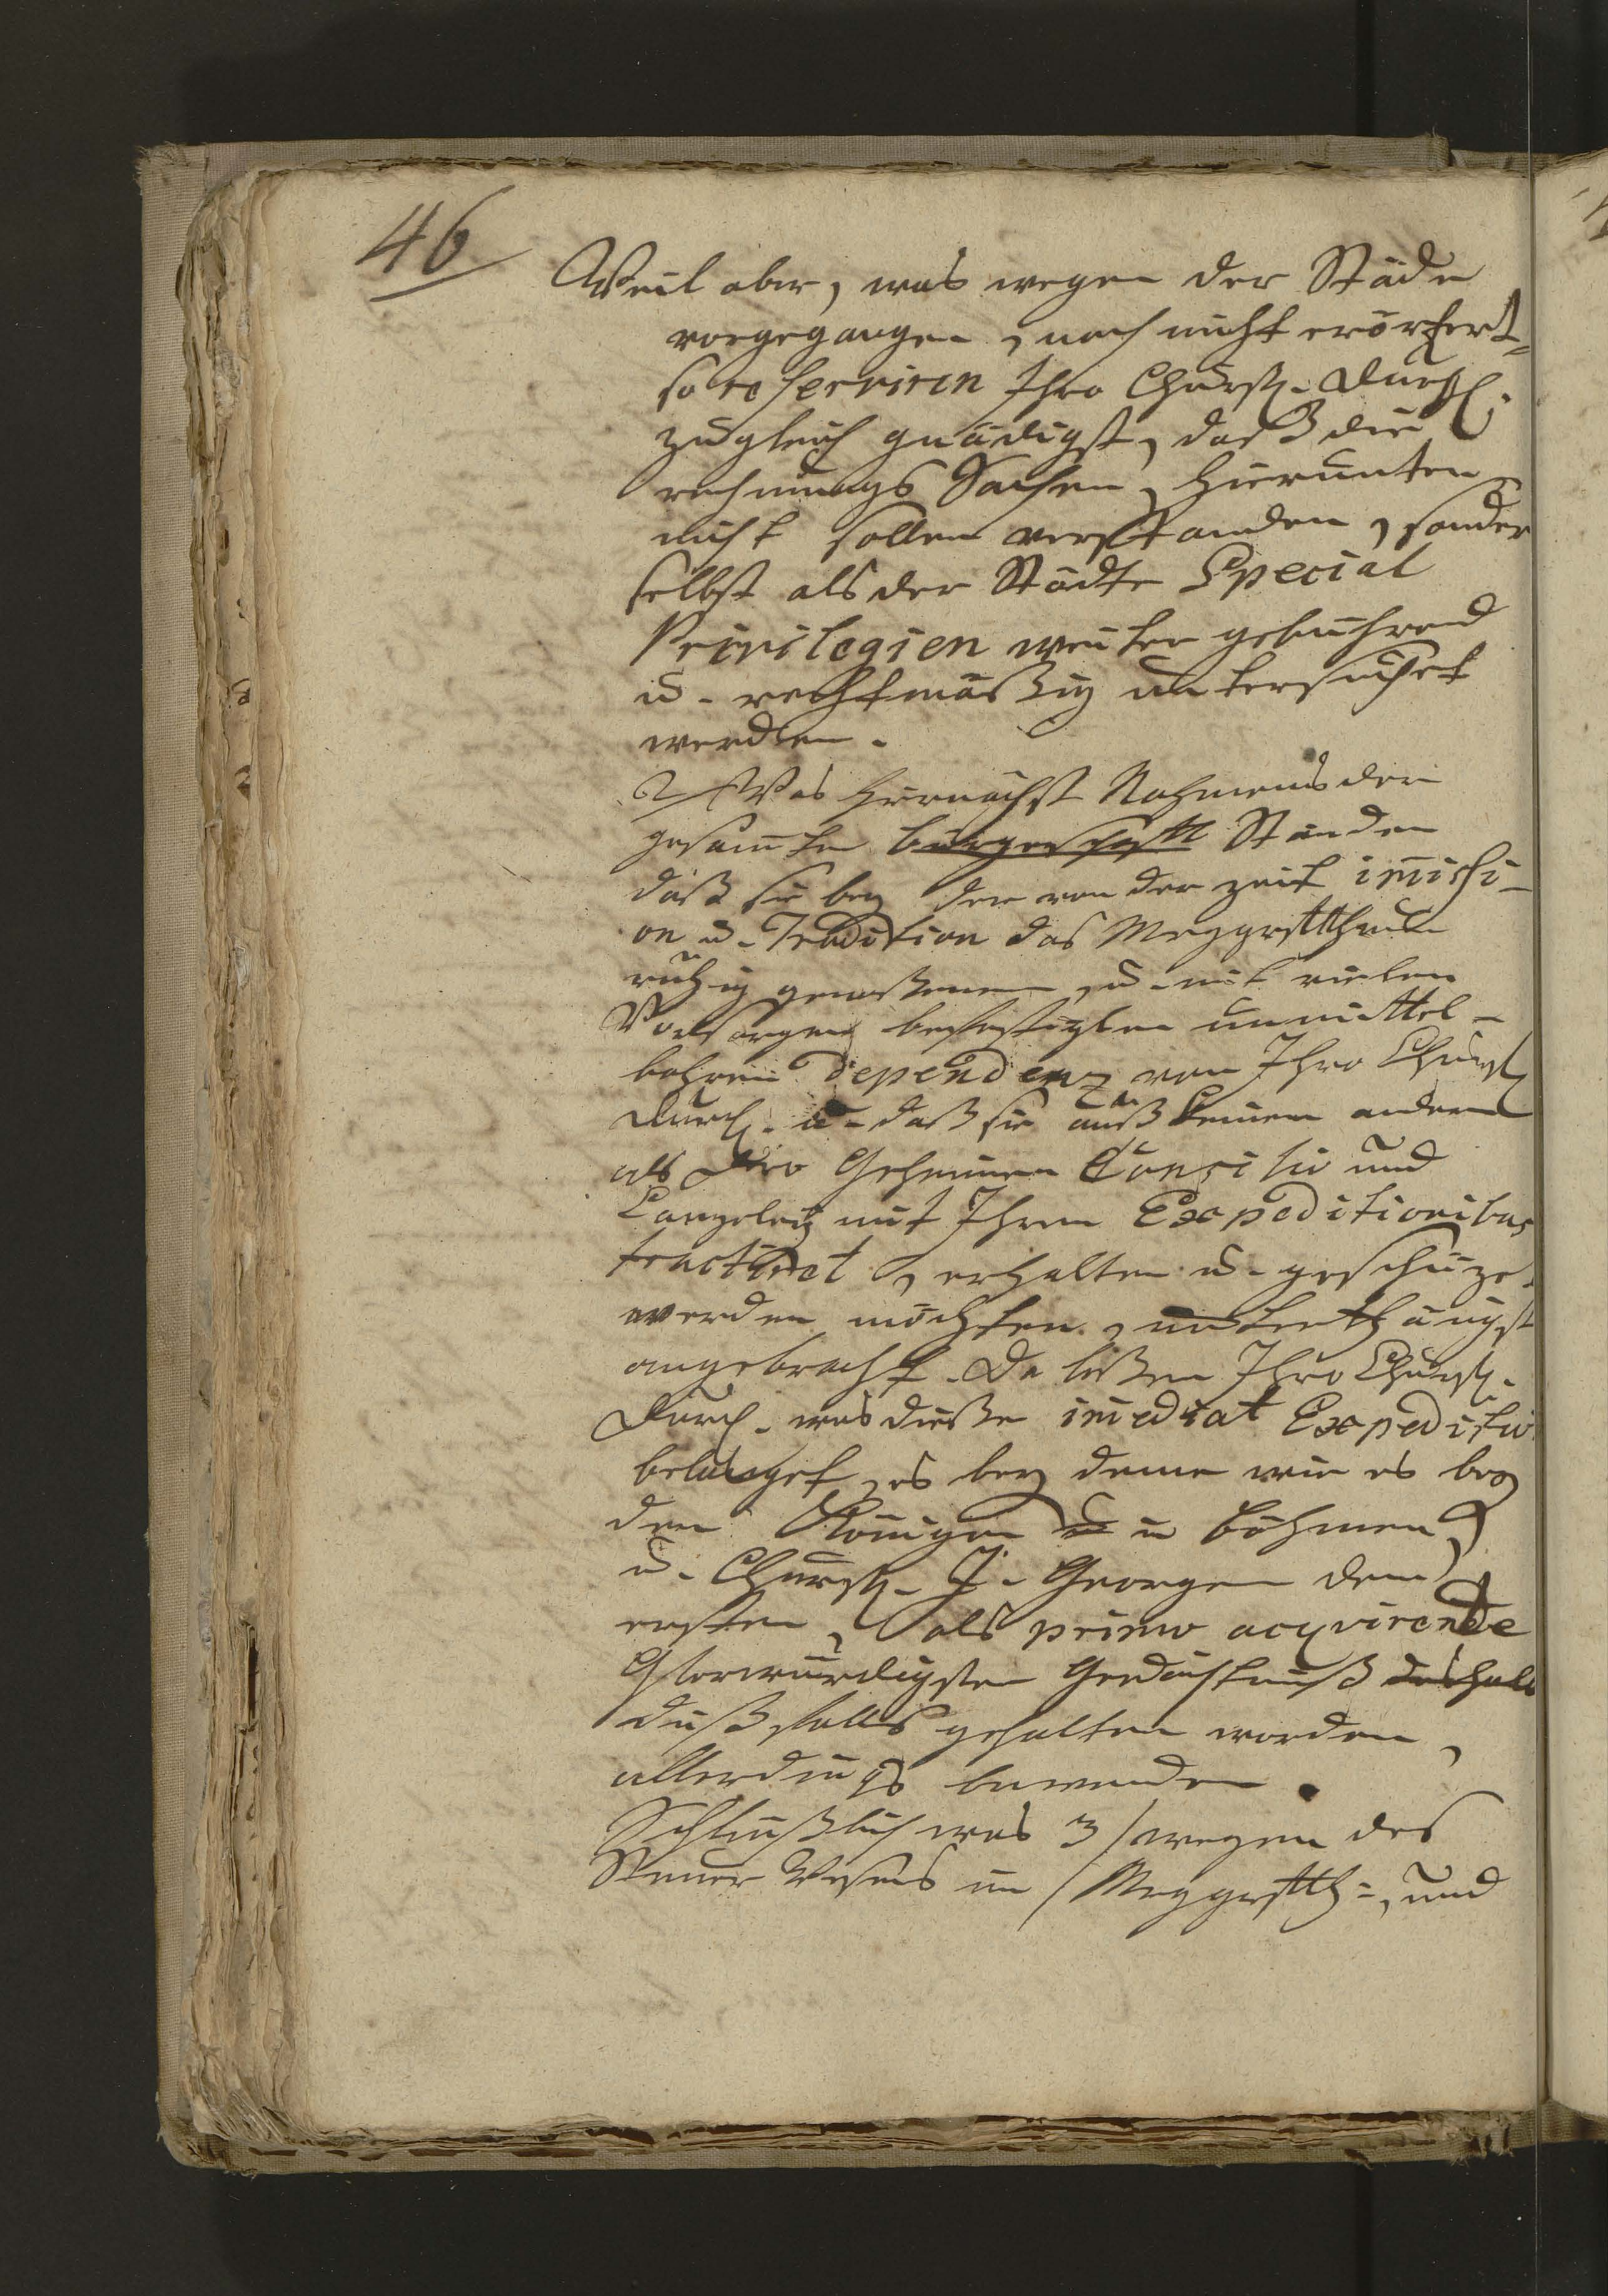 46
Weil aber, was wegen der Städe
vorgegangen, noch nicht erörtert,
so reserviren Ihro Churfl. Durchl.
zugleich gnädigst, daß die
rechnungs Sachen, hierunten
nicht sollen verstanden, sonder
selbst als der Städte Special
Privilegien weiter gebührend
u. rechtmäßig untersuchet
werden.
2/ Was hiernächst Nahmens der
gesamten Ständen
daß sie bey der von der zeit imissi-
on u. Tradition das Marggrftthum
ruhig genoßenen, u. mit vielen
befestigten unmittel-
bahren Dependenz von Ihro Churfl
Durchl. u. daß sie auß keinem andern
als Dero Geheimen Consilio und
Canzeley mit Ihren Expeditionibus
tractiret, erhalten u. geschüze.
werden möchten, unterthänigst
angebracht. Da lißen Ihro Churfl.
Durchl. was dieße imediat Expeditio
belanget, es bey deme wie es bey
den Königen in Böhmen,
u. Churfl. J. Georgen dem
ersten, als primo acqvirente
Glorwürdigsten Gedächtnuß deshalb
dißfalls gehalten worden,
allerdings bewenden.
Schlüßlich was 3/ wegen des
Steuer Wesens im Marggrftth:, und